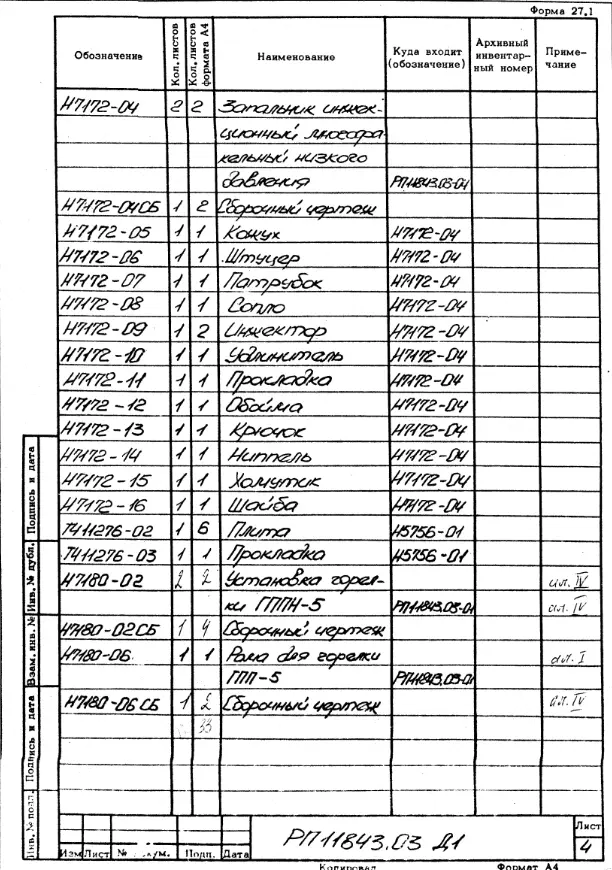 Форма 27.1
Обозначение Кол. листов Кол. листов формата А4 Наименование Куда входит (обозначение) Архивный инвентарный номер Примечание
Н7172-04 2 2 Запальник инжек-
ционный, многофа-
кельный низкого
давления РП11843.03-01
Н7172-04СБ 1 2 Сборочный чертеж
Н7172-05 1 1 Кожух Н7172-04
Н7172-06 1 1 Штуцер Н7172-04
Н7172-07 1 1 Патрубок Н7172-04
Н7172-08 1 1 Сопло Н7172-04
Н7172-09 1 2 Инжектор Н7172-04
Н7172-10 1 1 Удлинитель Н7172-04
Н7172-11 1 1 Прокладка Н7172-04
Н7172-12 1 1 Обойма Н7172-04
Н7172-13 1 1 Крючок Н7172-04
Н7172-14 1 1 Ниппель Н7172-04
Н7172-15 1 1 Хомутик Н7172-04
Н7172-16 1 1 Шайба Н7172-04
ТЧ11276-02 1 6 Плита Н5756-01
ТЧ11276-03 1 1 Прокладка Н5756-01
Н7180-02 2 2 Установка горел- ал. IV
ки ГППН-5 РП11843.03-01 ал. IV
Н7180-02СБ 1 4 Сборочный чертеж
Н7180-06 1 1 Рама для горелки ал. I
ГПП-5 РП11843.03-01
Н7180-06СБ 1 2 Сборочный чертеж ал. IV
33
Подпись и дата
Инв. № дубл.
Взам. инв. №
Подпись и дата
Инв. № подл.
Изм Лист № Подп. Дата
РП11843.03 Д1
Лист
4
Копировал Формат А4